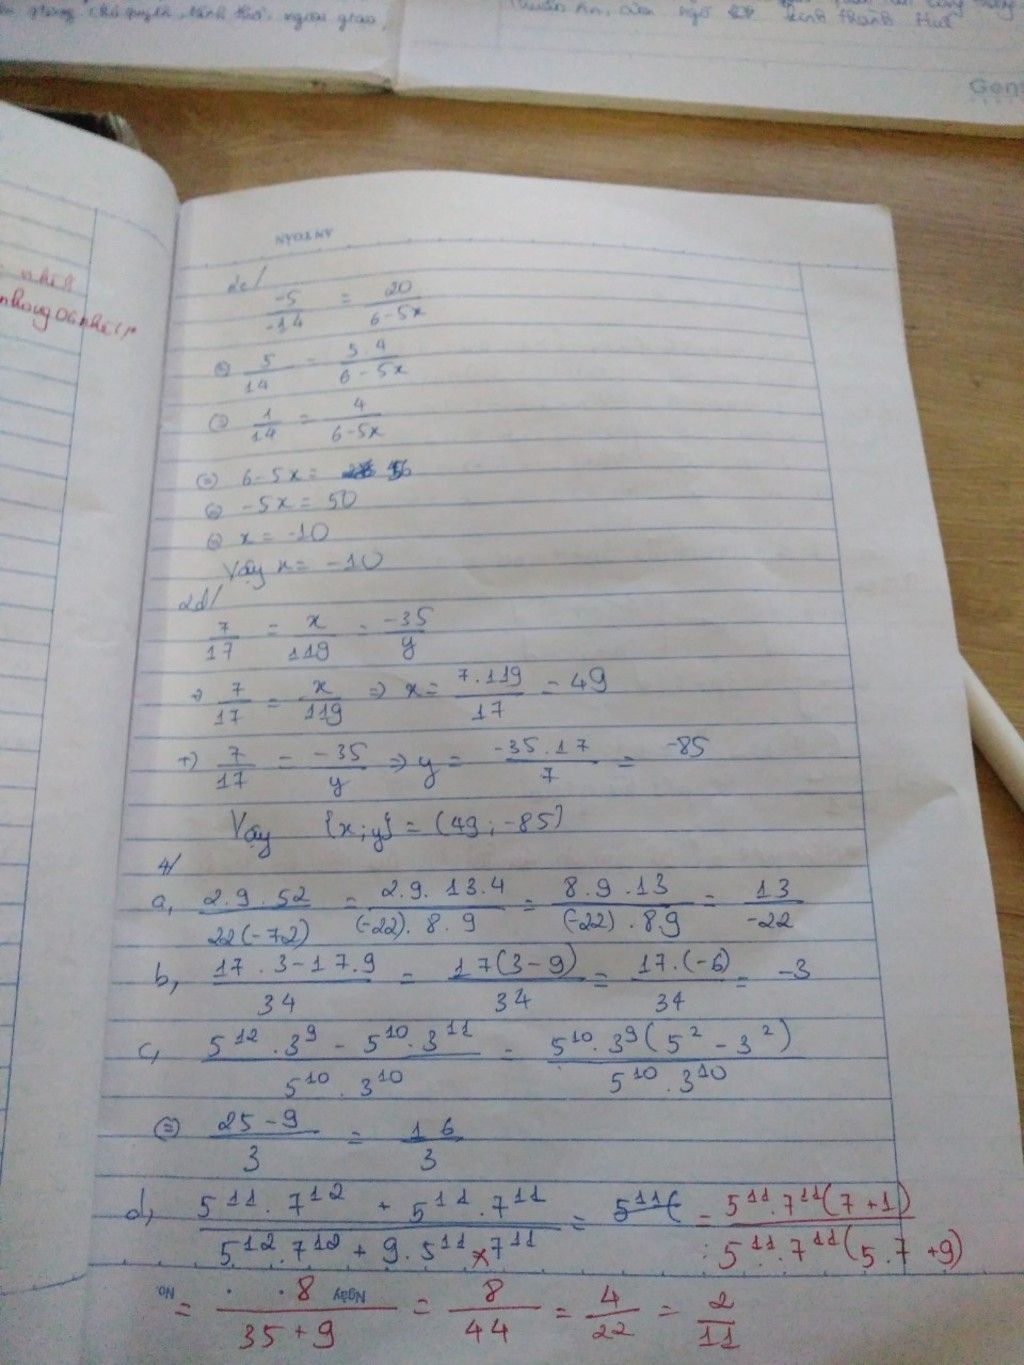 Thuận An, cửa ngõ kinh thành Huế
ngoại giao,
Gens
ANTOAN
2c/
-5/-14 = 20/6-5x
(=) 5/14 = 5.4/6-5x
(=) 1/14 = 4/6-5x
(=) 6-5x = 56
(=) -5x = 50
(=) x = -10
Vậy x = -10
2d/
7/17 = x/119 = -35/y
+) 7/17 = x/119 => x = 7.119/17 = 49
+) 7/17 = -35/y => y = -35.17/7 = -85
Vậy {x;y} = (49;-85)
4/
a, 2.9.52/22(-72) = 2.9.13.4/(-22).8.9 = 8.9.13/(-22).8.9 = 13/-22
b, 17.3-17.9/34 = 17(3-9)/34 = 17.(-6)/34 = -3
c, 5^12.3^9 - 5^10.3^11/5^10.3^10 = 5^10.3^9(5^2-3^2)/5^10.3^10
(=) 25-9/3 = 16/3
d, 5^11.7^12 + 5^11.7^11/5^12.7^12 + 9.5^11x7^11 = 5^11( = 5^11.7^11(7+1)/5^11.7^11(5.7+9)
No. Ngày
= 8/35+9 = 8/44 = 4/22 = 2/11